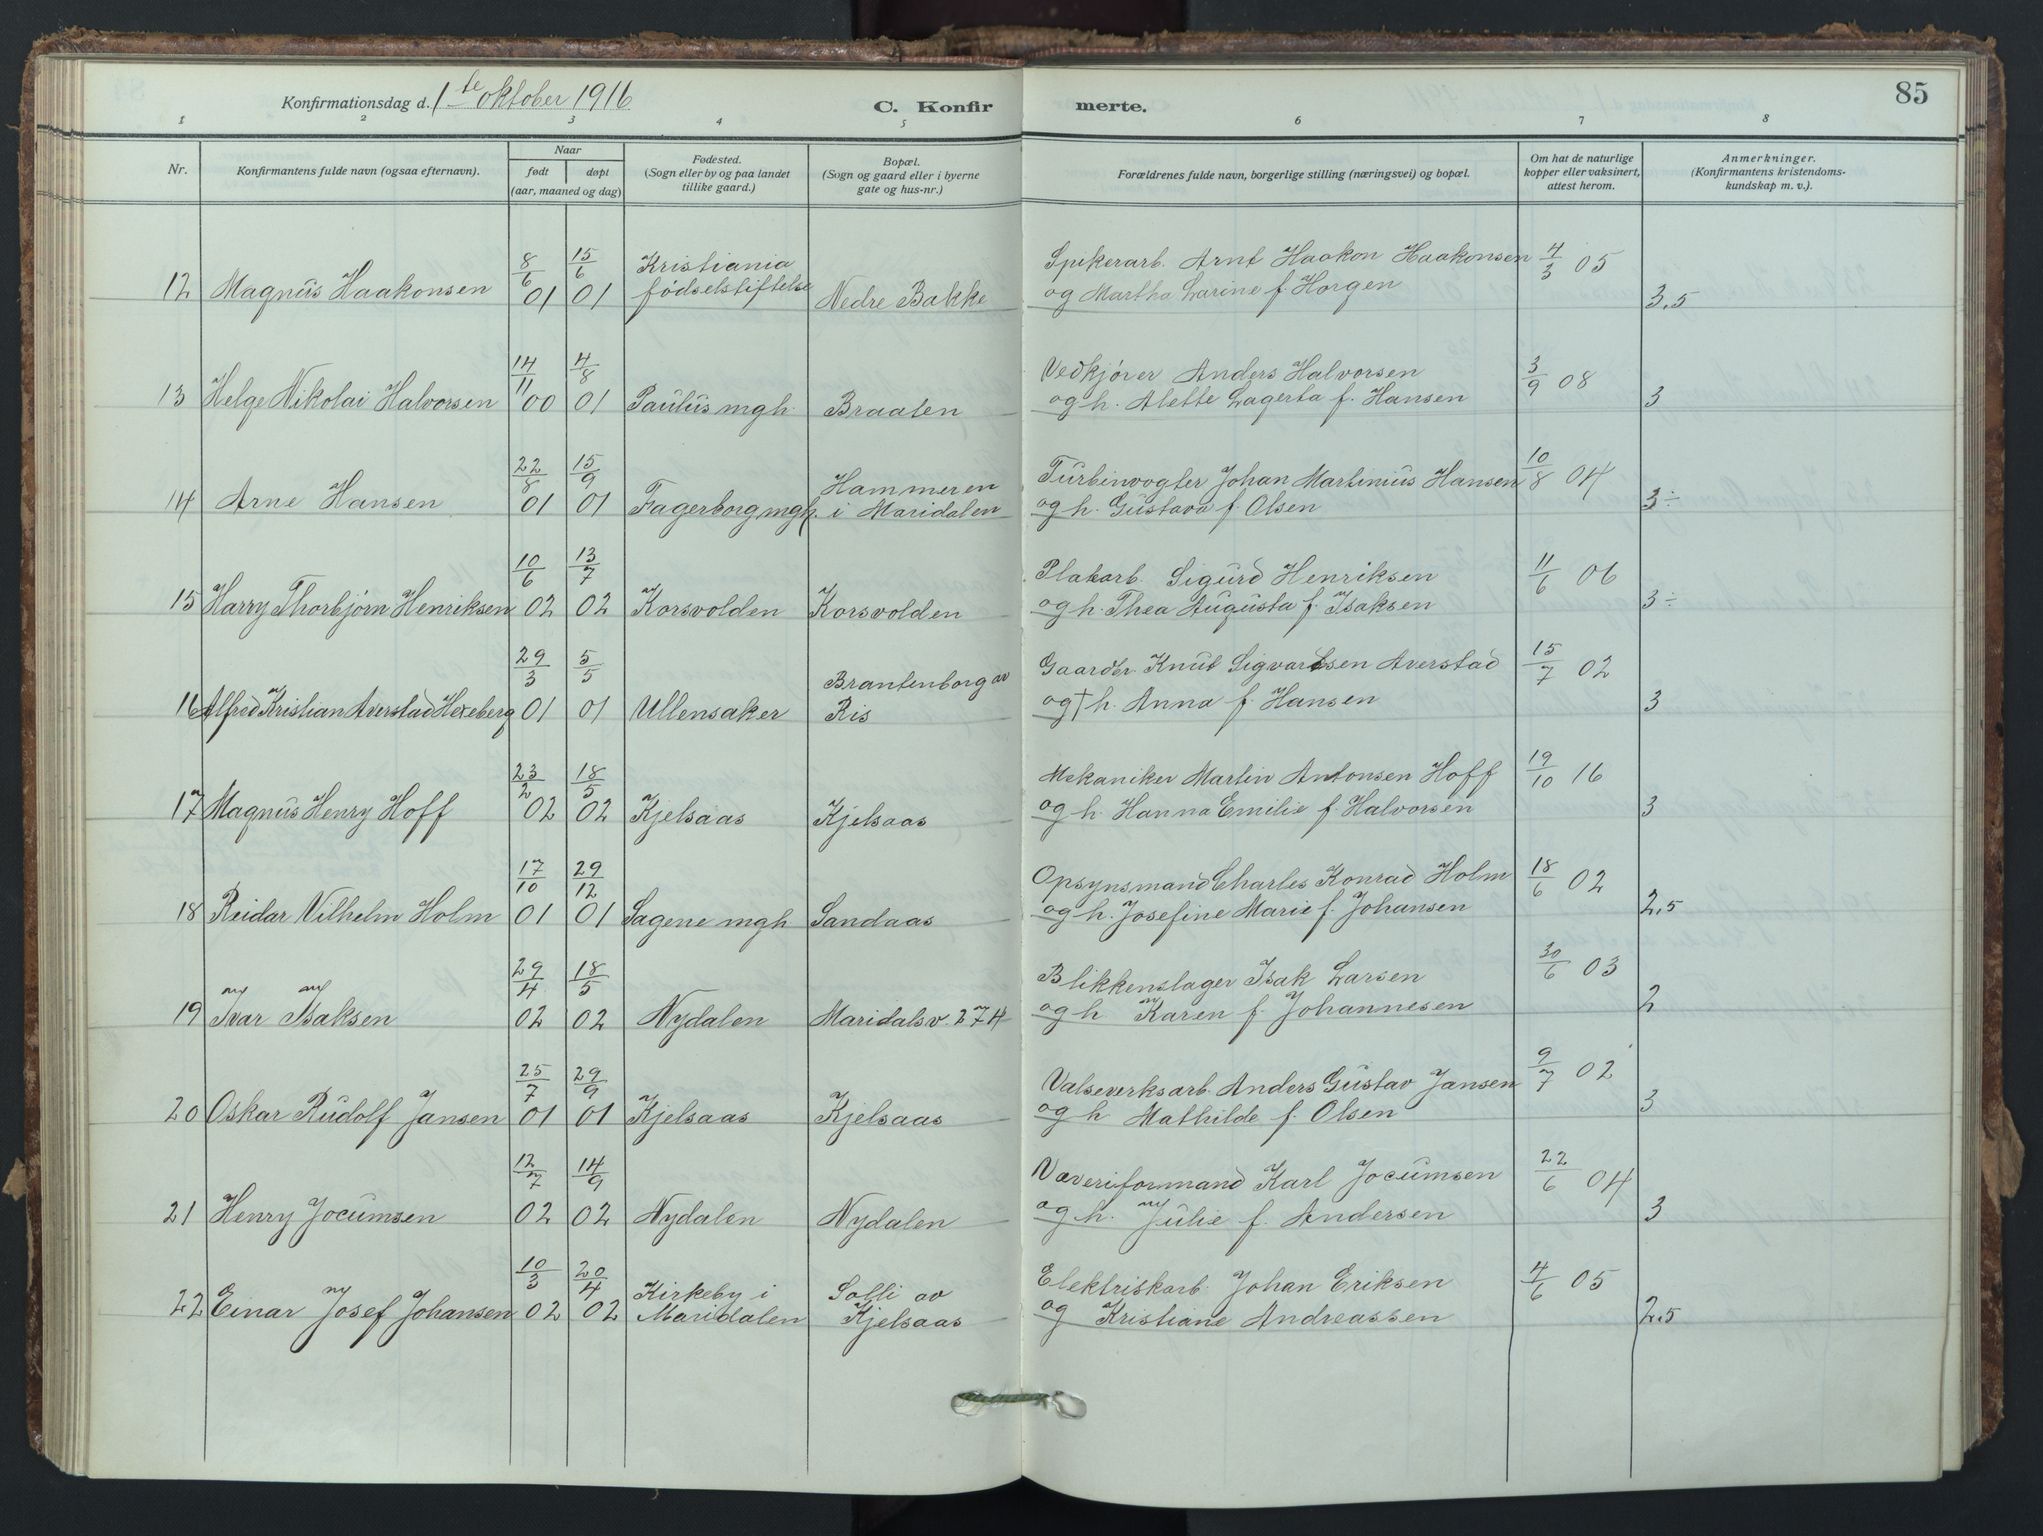 85
Konfirmationsdag d. 1ste oktober 1916
C. Konfir merte.
1 2 3 4 5 6 7 8
Nr.
Konfirmantens fulde navn (ogsaa efternavn).
Naar
født døpt
(aar, maaned og dag)
Fødested.
(Sogn eller by og paa landet
tillike gaard.)
Bopæl.
(Sogn og gaard eller i byerne
gate og hus-nr.)
Forældrenes fulde navn, borgerlige stilling (næringsvei) og bopæl.
Om hat de naturlige
kopper eller vaksinert,
attest herom.
Anmerkninger.
(Konfirmantens kristendoms-
kundskap m. v.).
8/6 15/6 Kristiania Spikerarb. Arnt Haakon Haakonsen 4/3 05
12 Magnus Haakonsen 01 01 fødselstiftelse Nedre Bakke og Martha Larine f. Horgen 3,5
14/11 4/8 Vedkjører Anders Halvorsen 3/9 08
13 Helge Nikolai Halvorsen 00 01 Paulus mgh. Braaten og h. Alette Lagerta f. Hansen 3
22/8 15/9 Hammeren Turbinvogter Johan Martinius Hansen 10/8 04
14 Arne Hansen 01 01 Fagerborg mgh. i Maridalen og h. Gustava f. Olsen 3÷
10/6 13/7 Platearb. Sigurd Henriksen 11/6 06
15 Harry Thorbjørn Henriksen 02 02 Korsvolden Korsvolden og h. Thea Augusta f. Isaksen 3÷
29/3 5/5 Brantenborg av Gaardbr. Knut Sigvartsen Averstad 15/7 02
16 Alfred Kristian Averstad Hexeberg 01 01 Ullensaker Ris og † h. Anna f. Hansen 3
23/2 18/5 Mekaniker Martin Antonsen Hoff 19/10 16
17 Magnus Henry Hoff 02 02 Kjelsaas Kjelsaas og h. Hanna Emilie f. Halvorsen 3
17/10 29/12 Opsynsmand Charles Konrad Holm 18/6 02
18 Reidar Vilhelm Holm 01 01 Sagene mgh Sandaas og h. Josefine Marie f. Johansen 2,5
29/4 18/5 Blikkenslager Isak Larsen 30/6 03
19 Ivar Isaksen 02 02 Nydalen Maridalsv. 274 og h Karen f. Johannesen 2
25/7 29/9 Valseverksarb. Anders Gustav Jansen 9/7 02
20 Oskar Rudolf Jansen 01 01 Kjelsaas Kjelsaas og h Mathilde f. Olsen 3
12/7 14/9 Væveriformand Karl Jocumsen 22/6 04
21 Henry Jocumsen 02 02 Nydalen Nydalen og h. Julie f. Andersen 3
10/3 20/4 Kirkeby i Solli av Elektriskarb. Johan Eriksen 4/6 05
22 Einar Josef Johansen 02 02 Maridalen Kjelsaas og Kristiane Andreassen 2,5